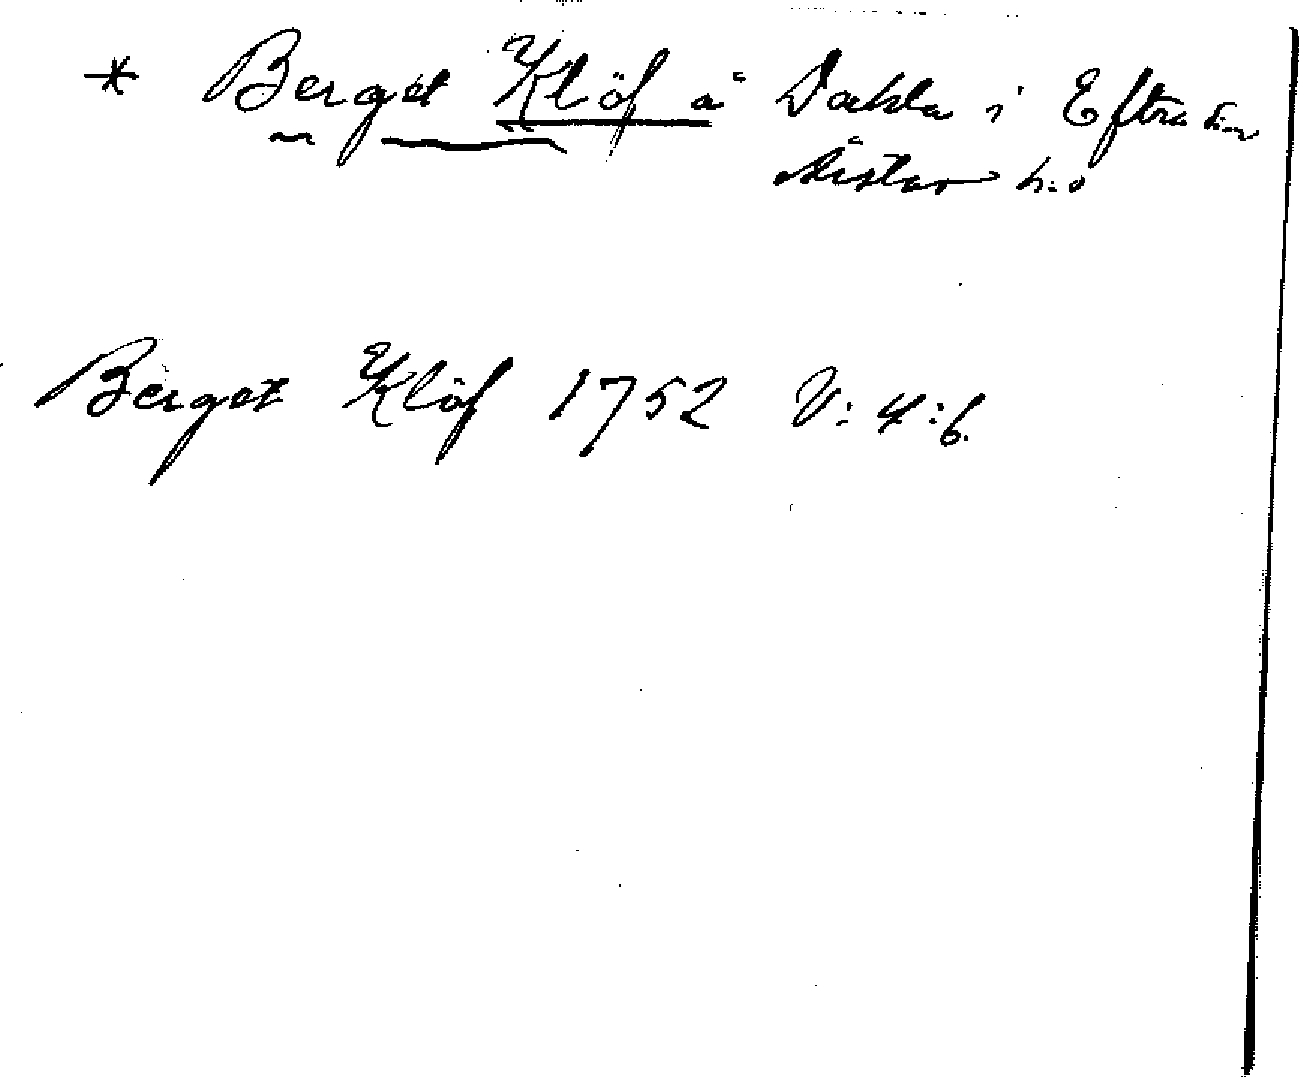 * Berget Klöf å Dakla i Eftra sn
Årstar h:o
Berget Klöf 1752 V: 4:6.